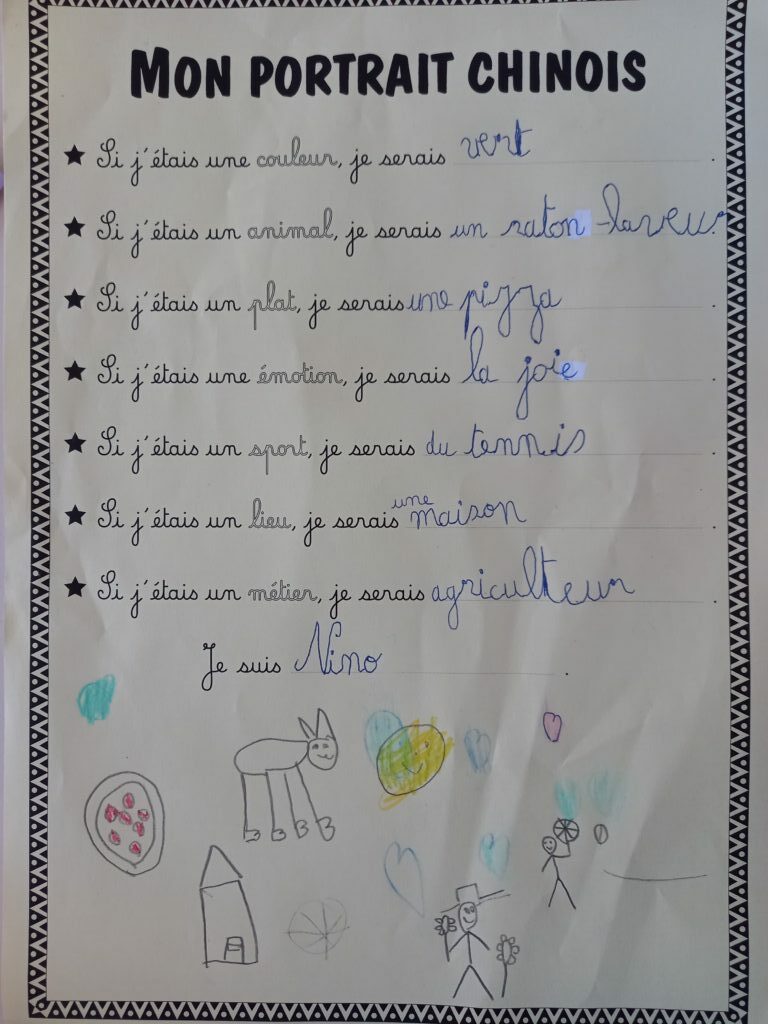 MON PORTRAIT CHINOIS
★ Si j'étais une couleur, je serais vert.
★ Si j'étais un animal, je serais un raton-laveur.
★ Si j'étais un plat, je serais une pizza.
★ Si j'étais une émotion, je serais la joie.
★ Si j'étais un sport, je serais du tennis.
★ Si j'étais un lieu, je serais une maison.
★ Si j'étais un métier, je serais agriculteur.
Je suis Nino.